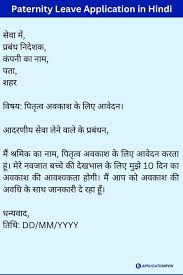 Paternity Leave Application in Hindi
सेवा में,
प्रबंध निदेशक,
कंपनी का नाम,
पता,
शहर
विषय: पितृत्व अवकाश के लिए आवेदन।
आदरणीय सेवा लेने वाले के प्रबंधन,
मैं श्रमिक का नाम, पितृत्व अवकाश के लिए आवेदन करता
हूं। मेरे नवजात बच्चे की देखभाल के लिए मुझे 10 दिन का
अवकाश की आवश्यकता होगी। मैं आप को अवकाश की
अवधि के साथ जानकारी दे रहा हूँ।
धन्यवाद,
तिथि: DD/MM/YYYY
APPLICATIONFOR